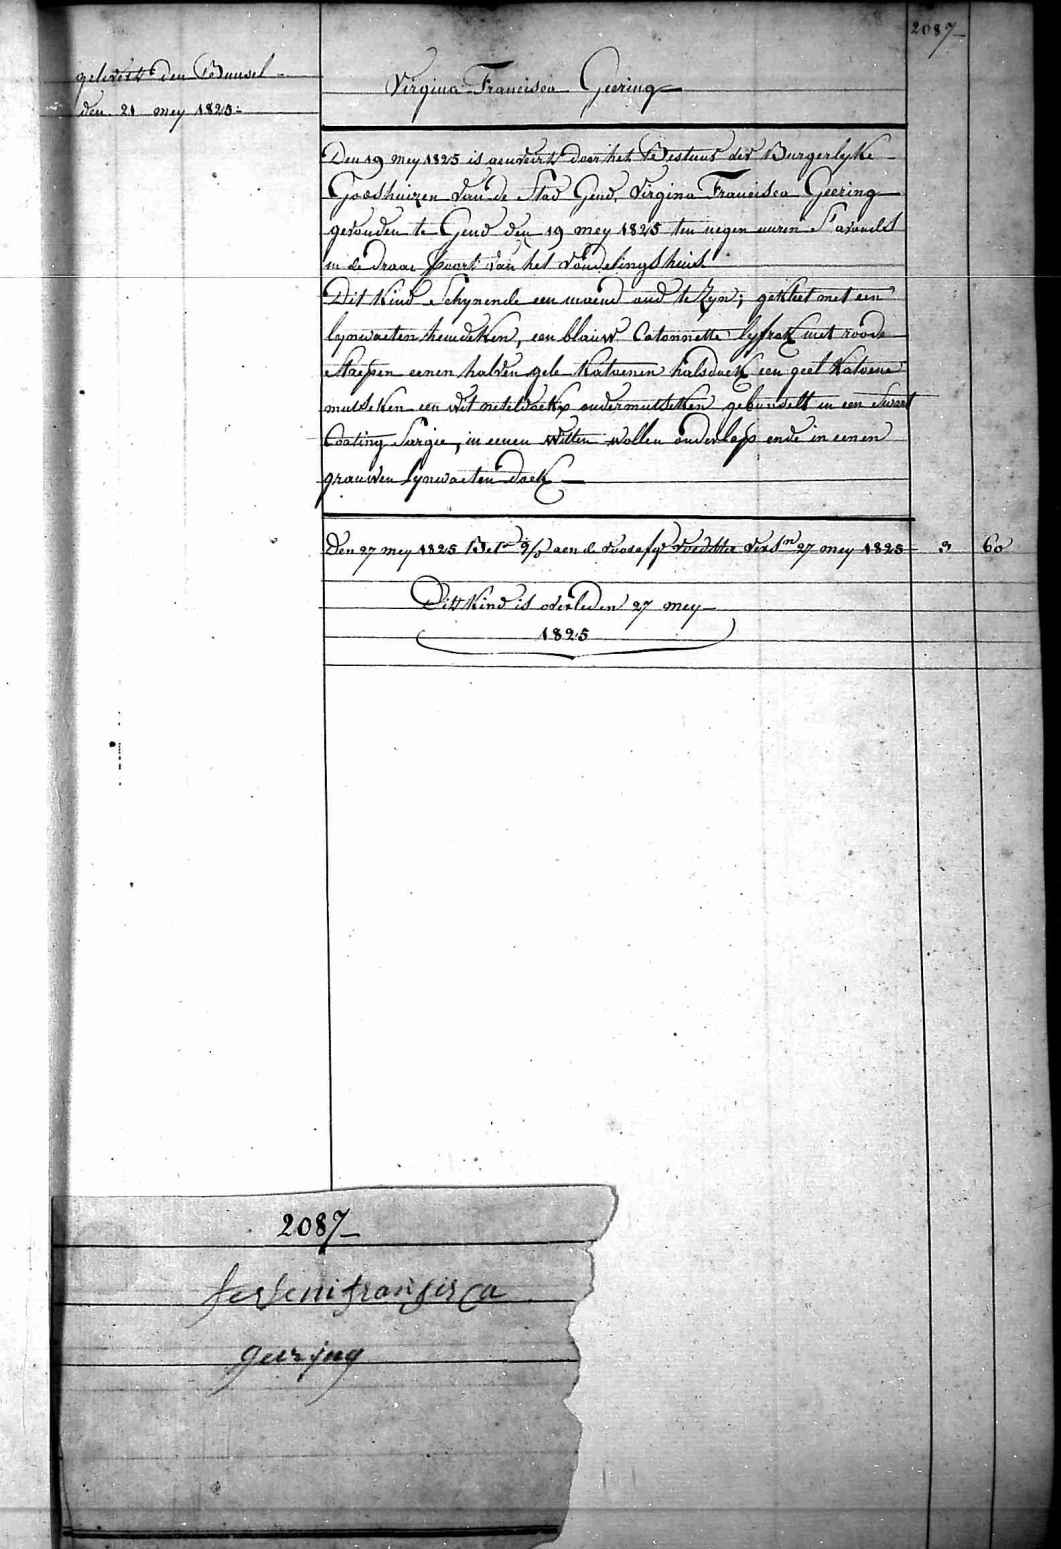 2087
gelevert den Bunsel
den 21 mey 1825:
Virgina Francisca Geering
Den 19 mey 1825 is aenveirt door het Bestuur der Burgerlyke
Godshuizen van de Stad Gend, Virgina Francisca Geering
gevonden te Gend den 19 mey 1825 ten negen uuren S'avonds
in de draai Poort van het Vondelingshuis
Dit Kind Schynende een maend oud te Zyn; gekleet met een
lynwaeten hemdeken, een blauw Catonnette lyfrok met roode
Strepen eenen halven gele Katoenen halsdoek een geel Katoene
mutseken een wit neteldoekx ondermutseken gebundelt in een Swart
Coating Sargie, in eenen witten wollen onderlap ende in eenen
grauwen Lynwaeten doek
Den 27 mey 1825 aen de voedster 27 mey 1825 3 60
Dit Kind is overleden 27 mey
1825
2087
fersenifransisca
geering